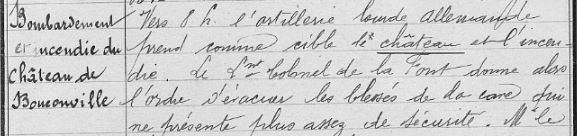 Bombardement
et incendie du
Château de
Bouconville
Vers 8 h. l'artillerie lourde Allemande
prend comme cible le château et l'incen-
die. Le Lt Colonel de la Font donne alors
l'ordre d'évacuer les blessés de la cave qui
ne présente plus assez de sécurité. Mr le